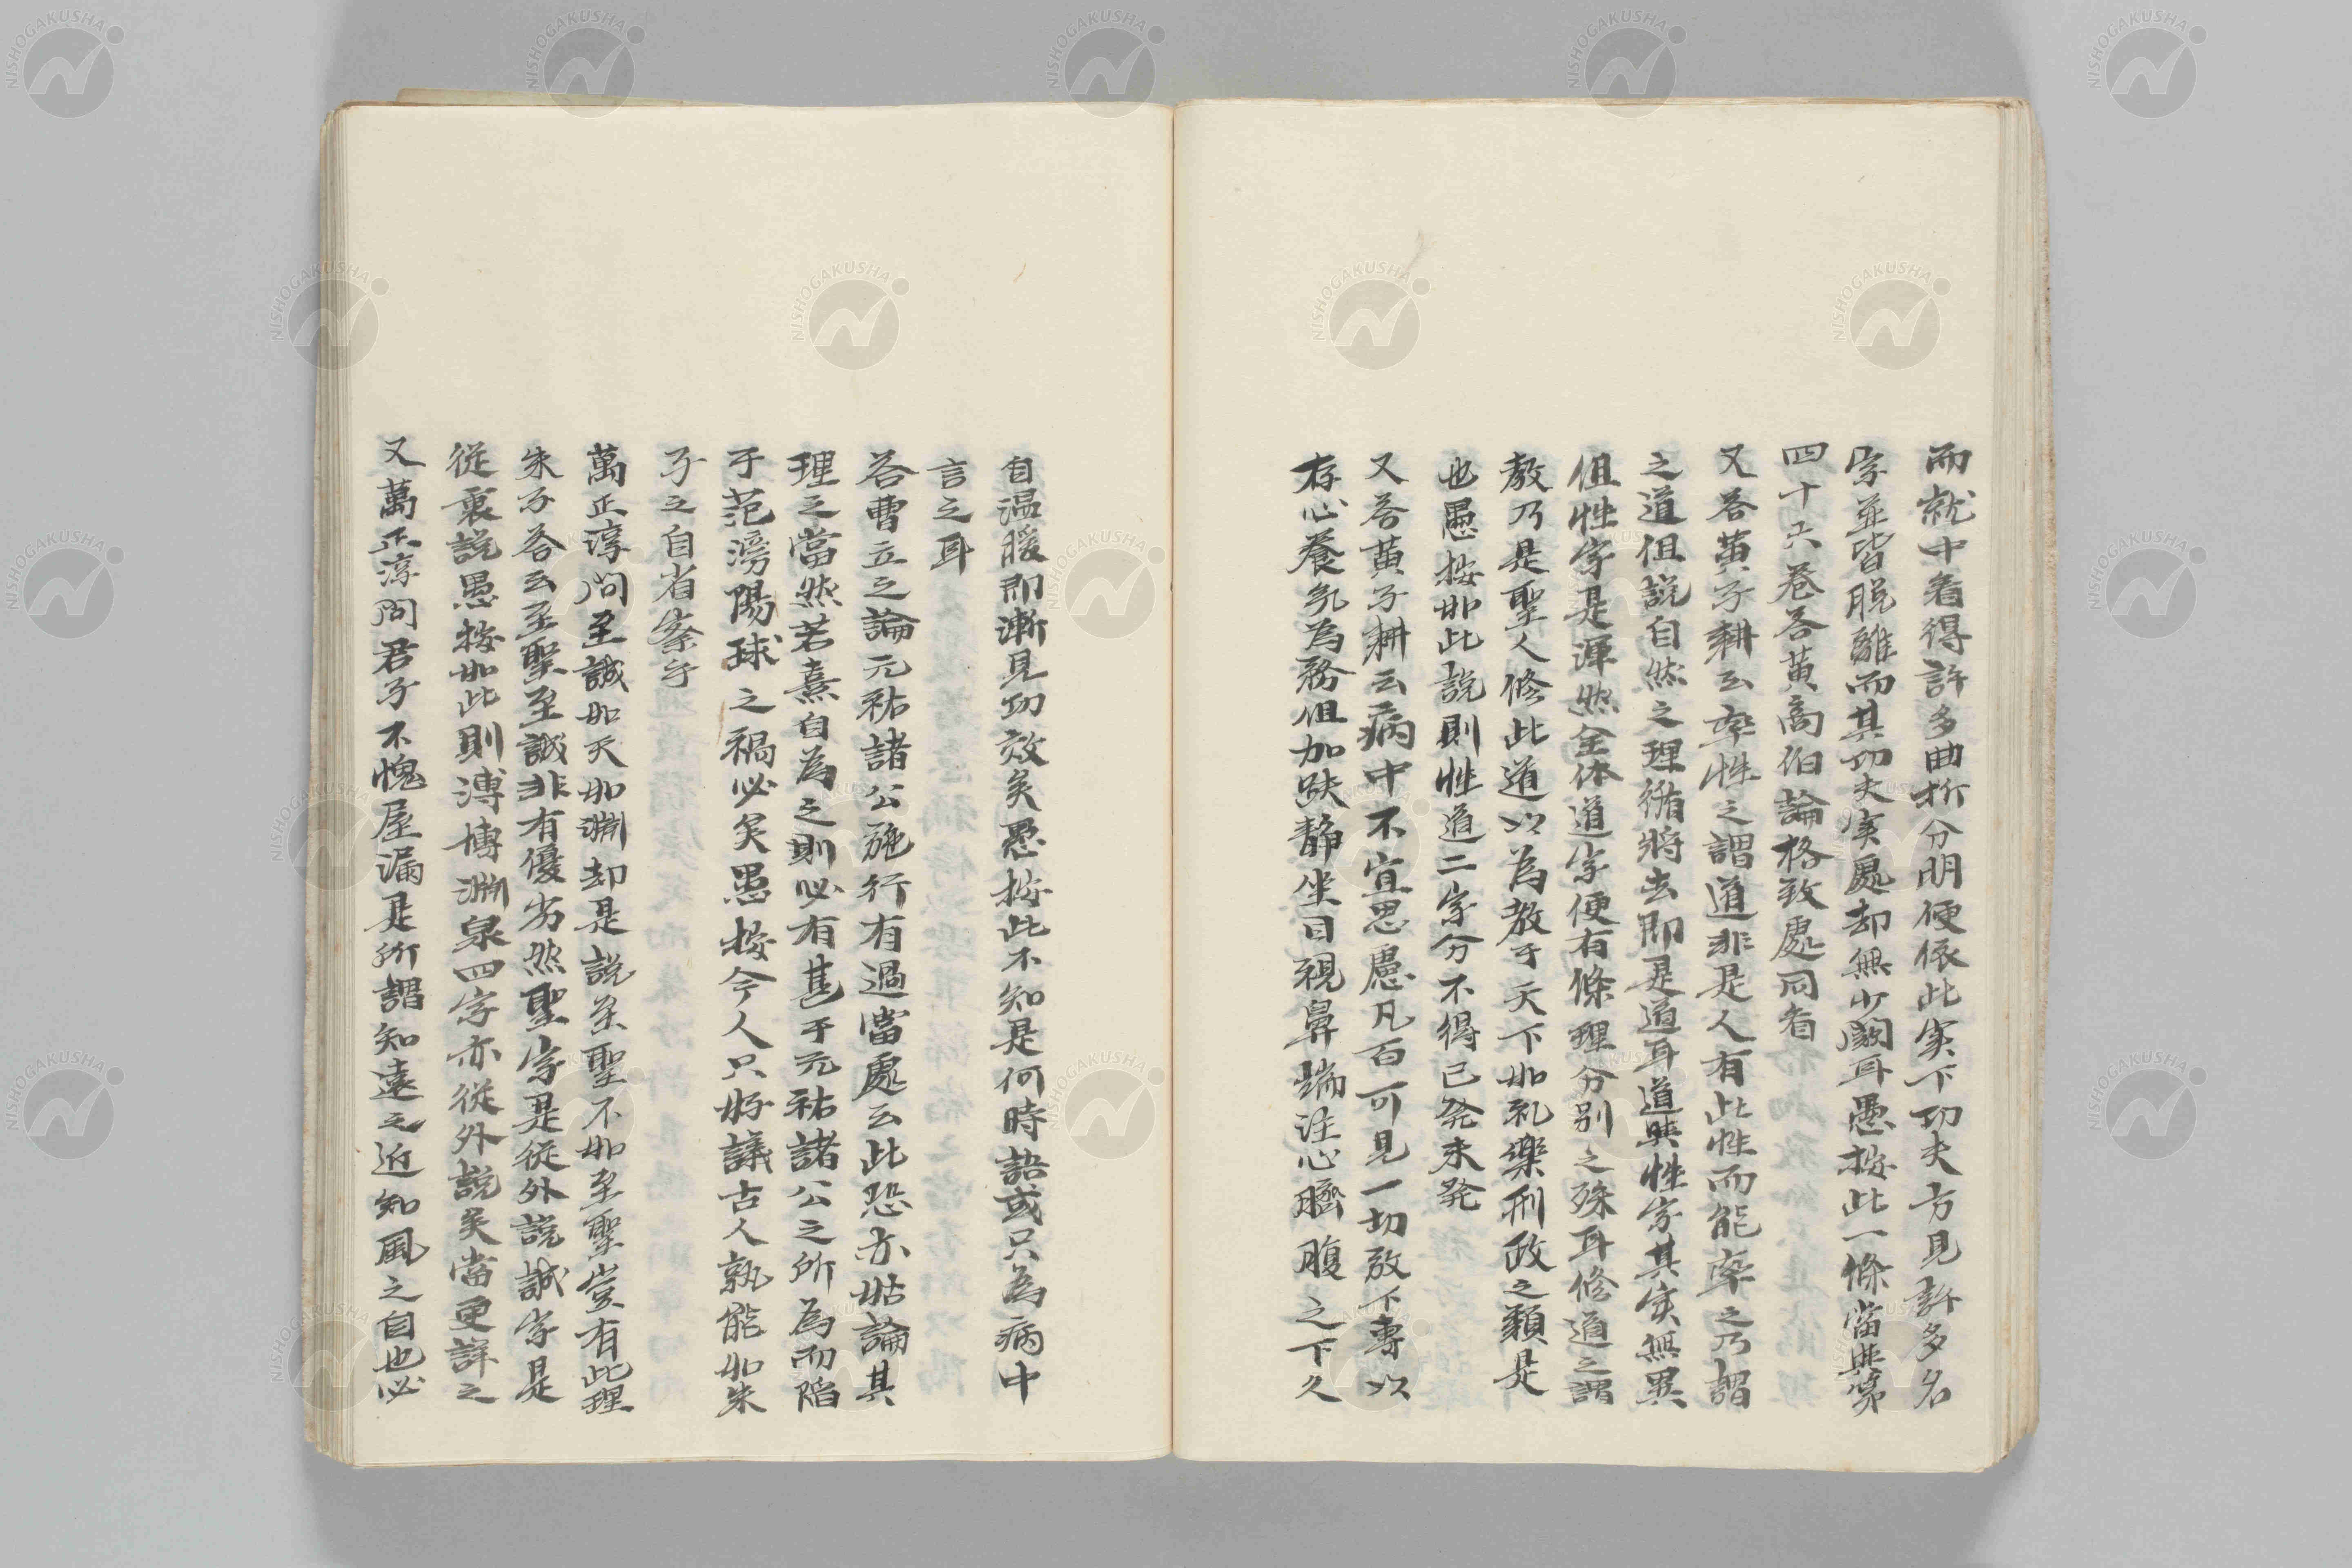 而就中看得許多曲折分明便依此実下功夫方見許多名
字並皆脱離而其功夫実處却無少闕耳愚按此一條當與第
四十六卷答黄商伯論格致處同看
又答黄子耕云率性之謂道非是人有此性而能率之乃謂
之道但説自然之理循将去即是道耳道與性字其実無異
但性字是渾然全体道字便有條理分别之殊耳修道之謂
教乃是聖人修此道以為教于天下如礼樂刑政之類是
也愚按如此説則性道二字分不得已発未発
又答黄子耕云病中不宜思慮凡百可見一切放下專以
存心養気為務但加趺静坐目視鼻端注心臍腹之下久
自温暖即漸見功效矣愚按此不知是何時語或只為病中
言之耳
答曹立之論元祐諸公施行有過當處云此恐亦姑論其
理之當然若熹自為之則必有甚于元祐諸公之所為而陷
于范滂陽球之禍必矣愚按今人只好議古人孰能如朱
子之自省察乎
萬正淳問至誠如天如淵却是説至聖不如至聖豈有此理
朱子答云至聖至誠非有優劣然聖字是従外説誠字是
従裏説愚按如此則溥博淵泉四字亦従外説矣當更詳之
又萬正淳問君子不愧屋漏是所謂知遠之近知風之自也必